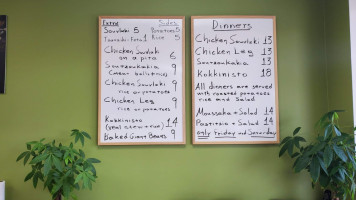 Extra Sides
Souvlaki 5 Potatoes 5
Tzatziki Feta 1 Rice 5
Chicken Souvlaki 6
on a pita
Soutzoukakia 9
(meat balls)rice
Chicken Souvlaki 9
rice or potatoes
Chicken Leg 9
rice or potatoes
Kokkinisto 14
(veal stew + rice)
Baked Giant Beans 9
Dinners
Chicken Souvlaki 13
Chicken Leg 13
Soutzoukakia 13
Kokkinisto 18
All dinners are served
with roasted potatoes
rice and Salad
Moussaka + Salad 14
Pastitsio + Salad 14
only Friday and Saturday